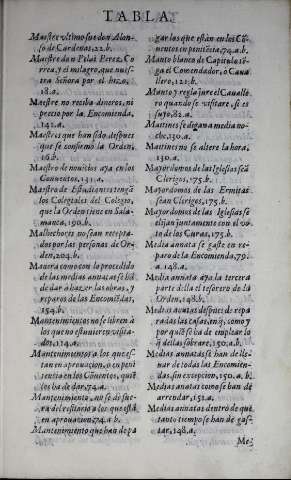 TABLA
Maestre vltimo fue don Alon-
so de Cardenas, 22.b.
Maestre dan Pelai Perez Cor-
rea, y el milagro, que nues-
tra Señora por el hizo,
18.a.
Maestre no reciba dineros, ni
precio por la Encomienda,
141.a.
Maestres que han sido despues
que se confirmo la Orden,
16.b.
Maestro de nouicios aya en los
Conuentos, 131.a.
Maestro de Estudiantes tengã
los Colegiales del Colegio,
que la Orden tiene en Sala-
manca, 190.b.
Malhechores no sean recepta-
dos por las personas de Or-
den, 204.b.
Manera como con lo procedido
de las medias annatas se hã
de dar à hazer las obras, y
reparos de las Encomiẽdas,
154.b.
Mantenimientos no se libren à
los que no estuuieren visita-
dos, 174.a.
Mantenimientos a los que es-
tan en aprouacion, ò en peni-
tencia en los Cõuentos, quiẽ
los ha de dar, 74.a.
Mantenimiento, no se discu-
ra del vestiario a los que estã
en aprouacion, 74.a.b.
Mantenimiento que han de pa
gar las que estàn en los Cõ-
uentos en penitẽcia, 74.a.b.
Manto blanco de Capitulo tẽ-
ga el Comendador, ò Caua-
llero, 121.b.
Manto y regla jure el Cauallẽ
ro quando se visitare, si es
suyo, 82.a.
Maitines se digan a media no-
che, 130.a.
Maitines no se altere la hora,
130.a.
Mayordomos de las Iglesias seã
Clerigos, 175.b.
Mayordomos de las Ermitas
sean Clerigos, 175.b.
Mayordomos de las Iglesias se
elijan juntamente con el vo-
to de los Curas, 175.b.
Media annata se gaste en repa-
ro de la Encomienda, 79.
a. 148.a.
Media annata aya la tercera
parte della el tesorero de la
Orden, 148.b.
Medias annatas despues de repa
radas las casas, en q̃, como y
por quiẽ se ha de emplear lo
q̃ dellas sobrare, 150.a.b.
Medias annatas se han de lle-
nar de todas las Encomien-
das, sin excepcion, 150.a.b.
Medias annatas como se han de
arrendar, 151.a.
Medias annatas dentro de que
tanto tiempo se han de gas-
tar, 148.a.
Me-